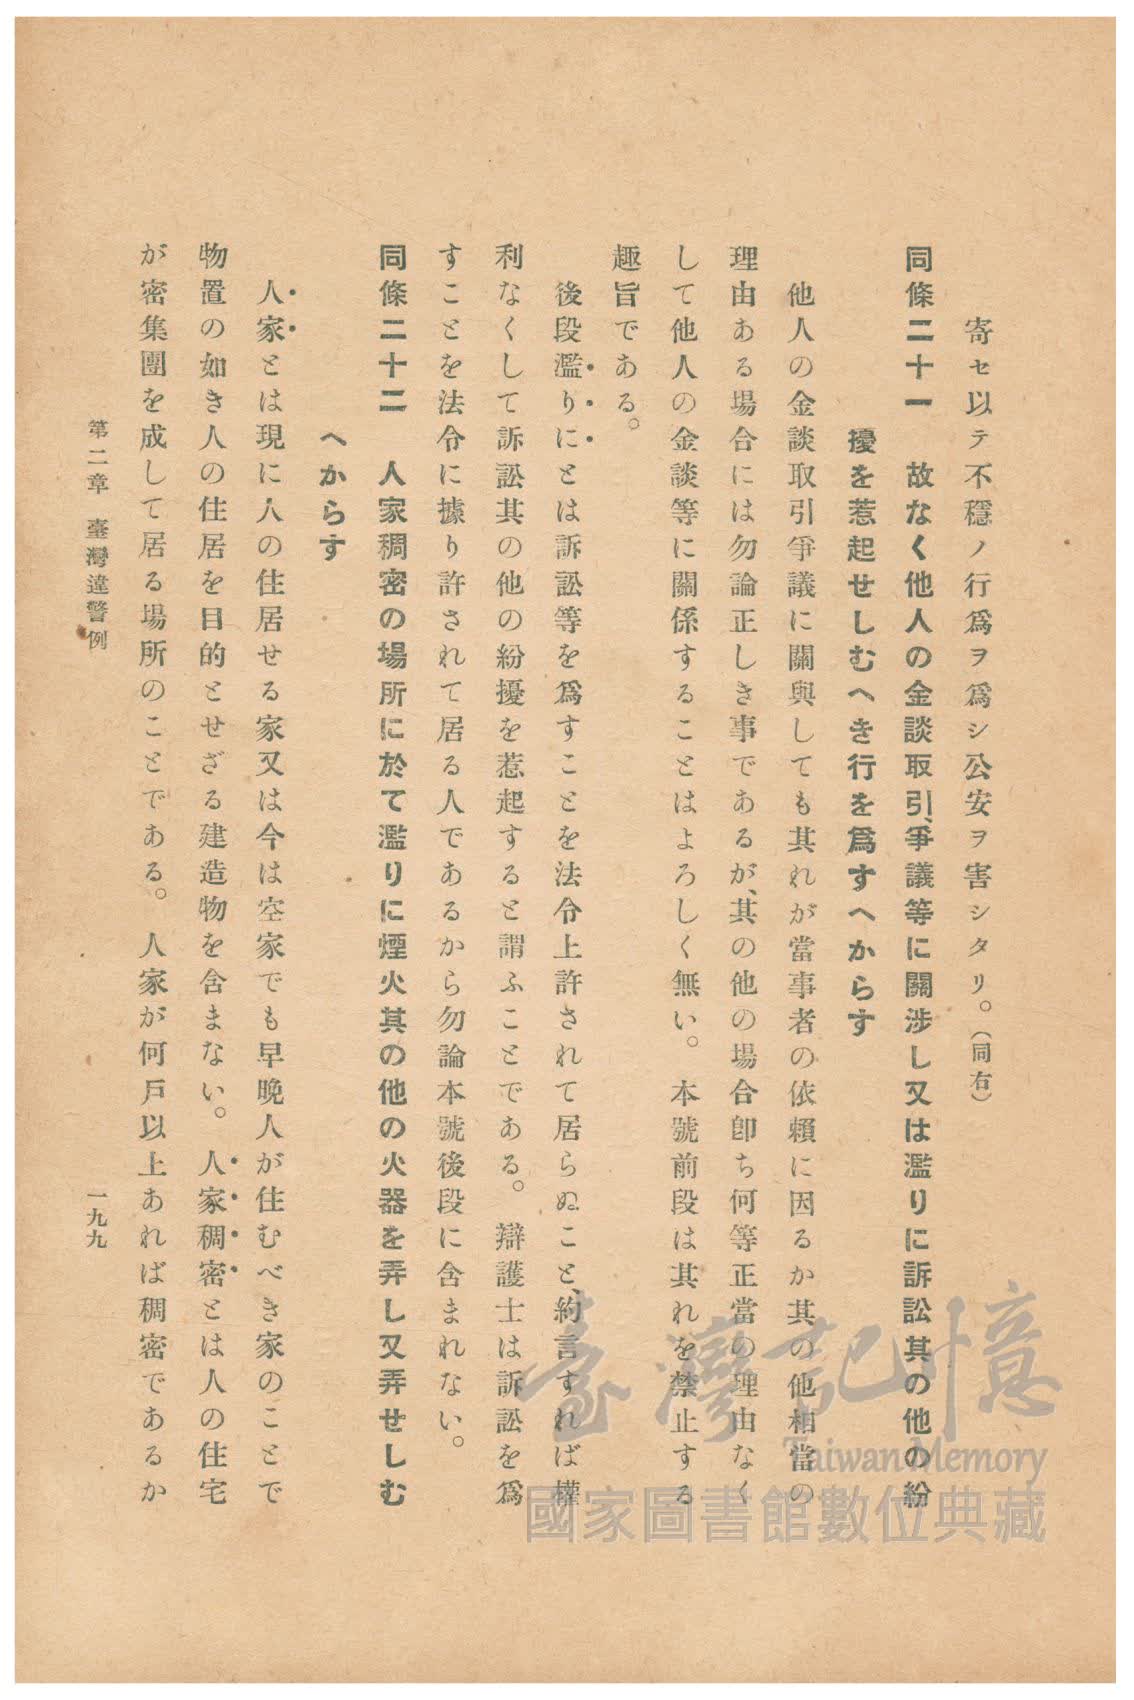 寄セ以テ不穩ノ行爲ヲ爲シ公安ヲ害シタリ。（同右）
同條二十一　故なく他人の金談取引、爭議等に關渉し又は濫りに訴訟其の他の紛
擾を惹起せしむへき行を爲すへからす
他人の金談取引爭議に關與しても其れが當事者の依賴に因るか其の他相當の
理由ある場合には勿論正しき事であるが、其の他の場合卽ち何等正當の理由なく
して他人の金談等に關係することはよろしく無い。本號前段は其れを禁止する
趣旨である。
後段濫りにとは訴訟等を爲すことを法令上許されて居らぬこと、約言すれば權
利なくして訴訟其の他の紛擾を惹起すると謂ふことである。辯護士は訴訟を爲
すことを法令に據り許されて居る人であるから勿論本號後段に含まれない。
同條二十二　人家稠密の場所に於て濫りに煙火其の他の火器を弄し又弄せしむ
へからす
人家とは現に人の住居せる家又は今は空家でも早晩人が住むべき家のことで
物置の如き人の住居を目的とせざる建造物を含まない。人家稠密とは人の住宅
が密集團を成して居る場所のことである。人家が何戶以上あれば稠密であるか
第二章　臺灣違警例
一九九
臺灣記憶
Taiwan Memory
國家圖書館數位典藏